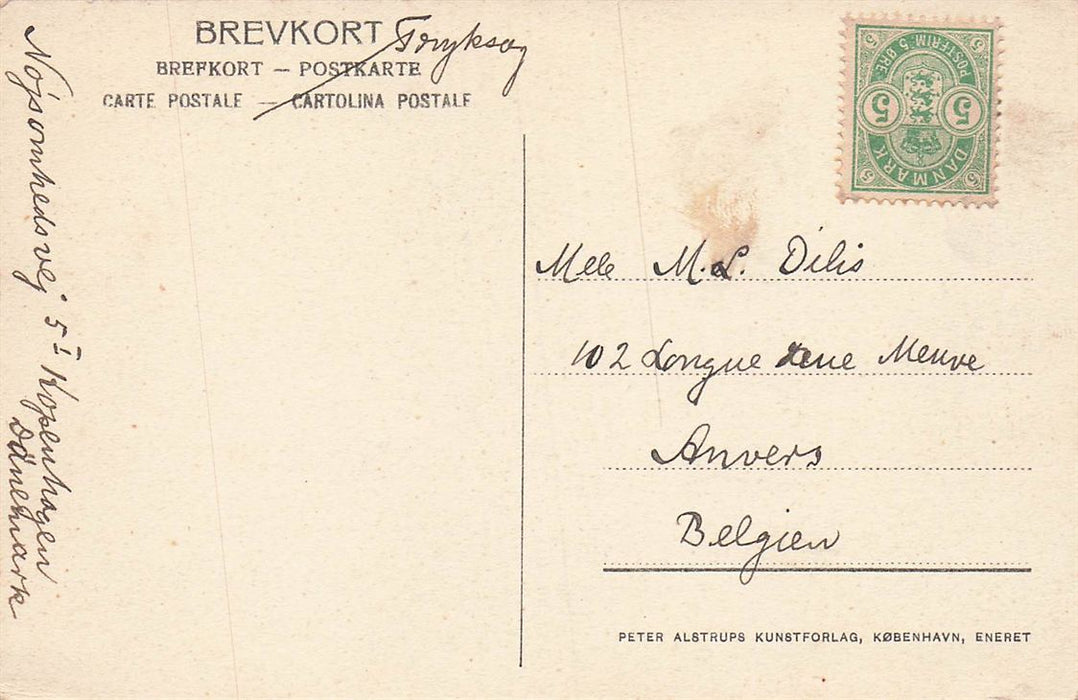 BREVKORT Tryksag
BREFKORT — POSTKARTE
CARTE POSTALE — CARTOLINA POSTALE
POSTFRIM. 5 ØRE.
5 5
5 5
5 5
DANMARK
Nøjsomhedsvej 5 I Kopenhagen
Dänemark
Mele M. L. Dilis
102 Longue Rue Neuve
Anvers
Belgien
PETER ALSTRUPS KUNSTFORLAG, KØBENHAVN, ENERET